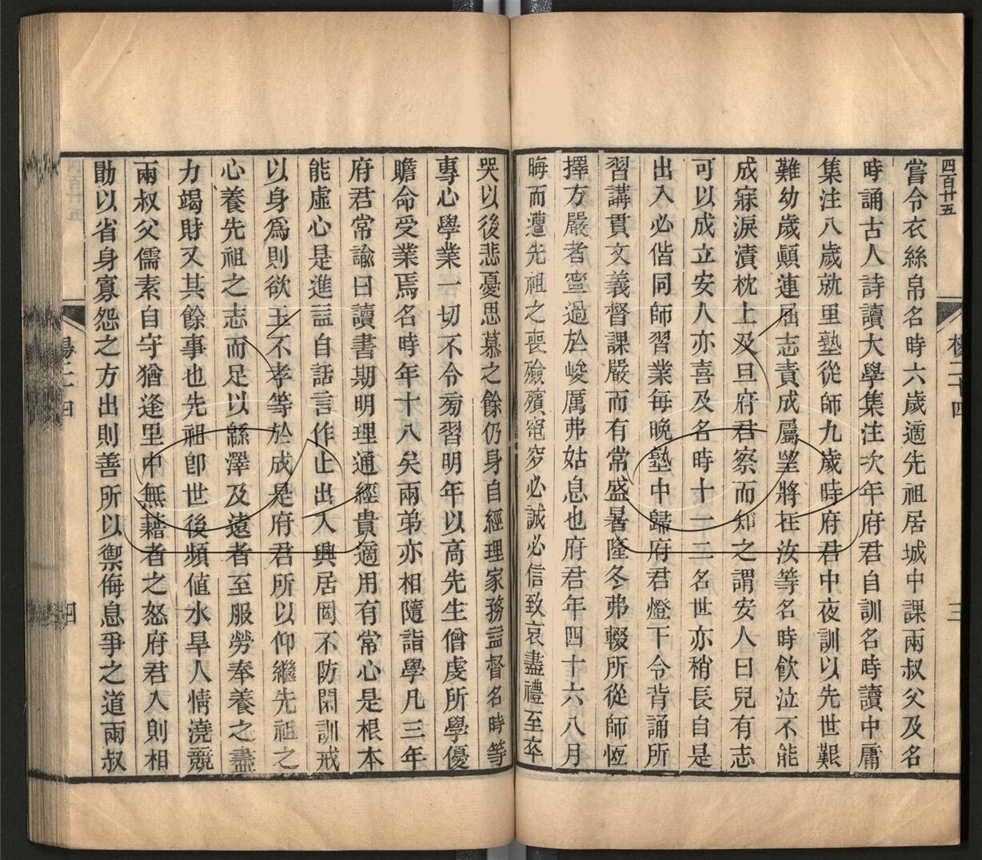 四百廿五
嘗令衣絲帛名時六歲適先祖居城中課兩叔父及名
時誦古人詩讀大學集注次年府君自訓名時讀中庸
集注八歲就里塾從師九歲時府君中夜訓以先世艱
難幼歲顛連屈志責成屬望將在汝等名時飲泣不能
成寐淚漬枕上及旦府君察而知之謂安人曰兒有志
可以成立安人亦喜及名時十一二名世亦稍長自是
出入必偕同師習業每晚塾中歸府君燈下令背誦所
習講貫文義督課嚴而有常盛暑隆冬弗輟所從師恆
擇方嚴者寧過於峻厲弗姑息也府君年四十六八月
晦而遭先祖之喪殮殯窀穸必誠必信致哀盡禮至卒
哭以後悲憂思慕之餘仍身自經理家務益督名時等
專心學業一切不令旁習明年以高先生僧虔所學優
贍命受業焉名時年十八矣兩弟亦相隨詣學凡三年
府君常諭曰讀書期明理通經貴適用有常心是根本
能虛心是進益自話言作止出入興居罔不防閑訓戒
以身爲則欲玉不孝等於成是府君所以仰繼先祖之
心養先祖之志而足以緜澤及遠者至服勞奉養之盡
力竭財又其餘事也先祖卽世後頻値水旱人情澆競
兩叔父儒素自守猶逢里中無藉者之怒府君入則相
勖以省身寡怨之方出則善所以禦侮息爭之道兩叔